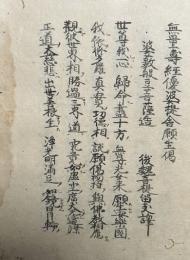 無量壽經優婆提舍願生偈
婆藪般豆菩薩造 後魏菩提留支譯
世尊我一心 歸命盡十方 無㝵光如來 願生安樂國
我依修多羅 真實功德相 說願偈總持 與佛教相應
觀彼世界相 勝過三界道 究竟如虛空 廣大無邊際
正道大慈悲 出世善根生 淨光明滿足 如鏡日月輪